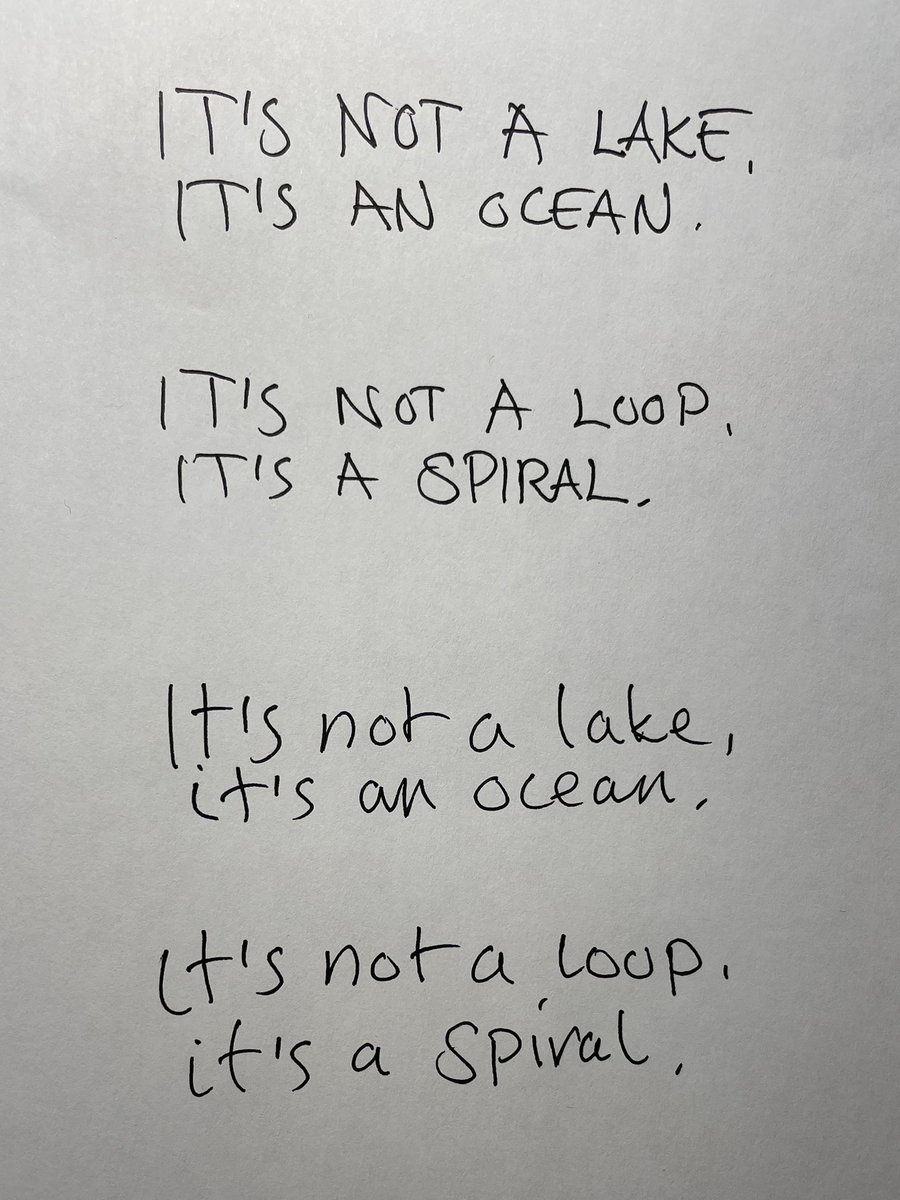 IT'S NOT A LAKE,
IT'S AN OCEAN.
IT'S NOT A LOOP,
IT'S A SPIRAL.
It's not a lake,
it's an ocean.
It's not a loop.
it's a spiral.